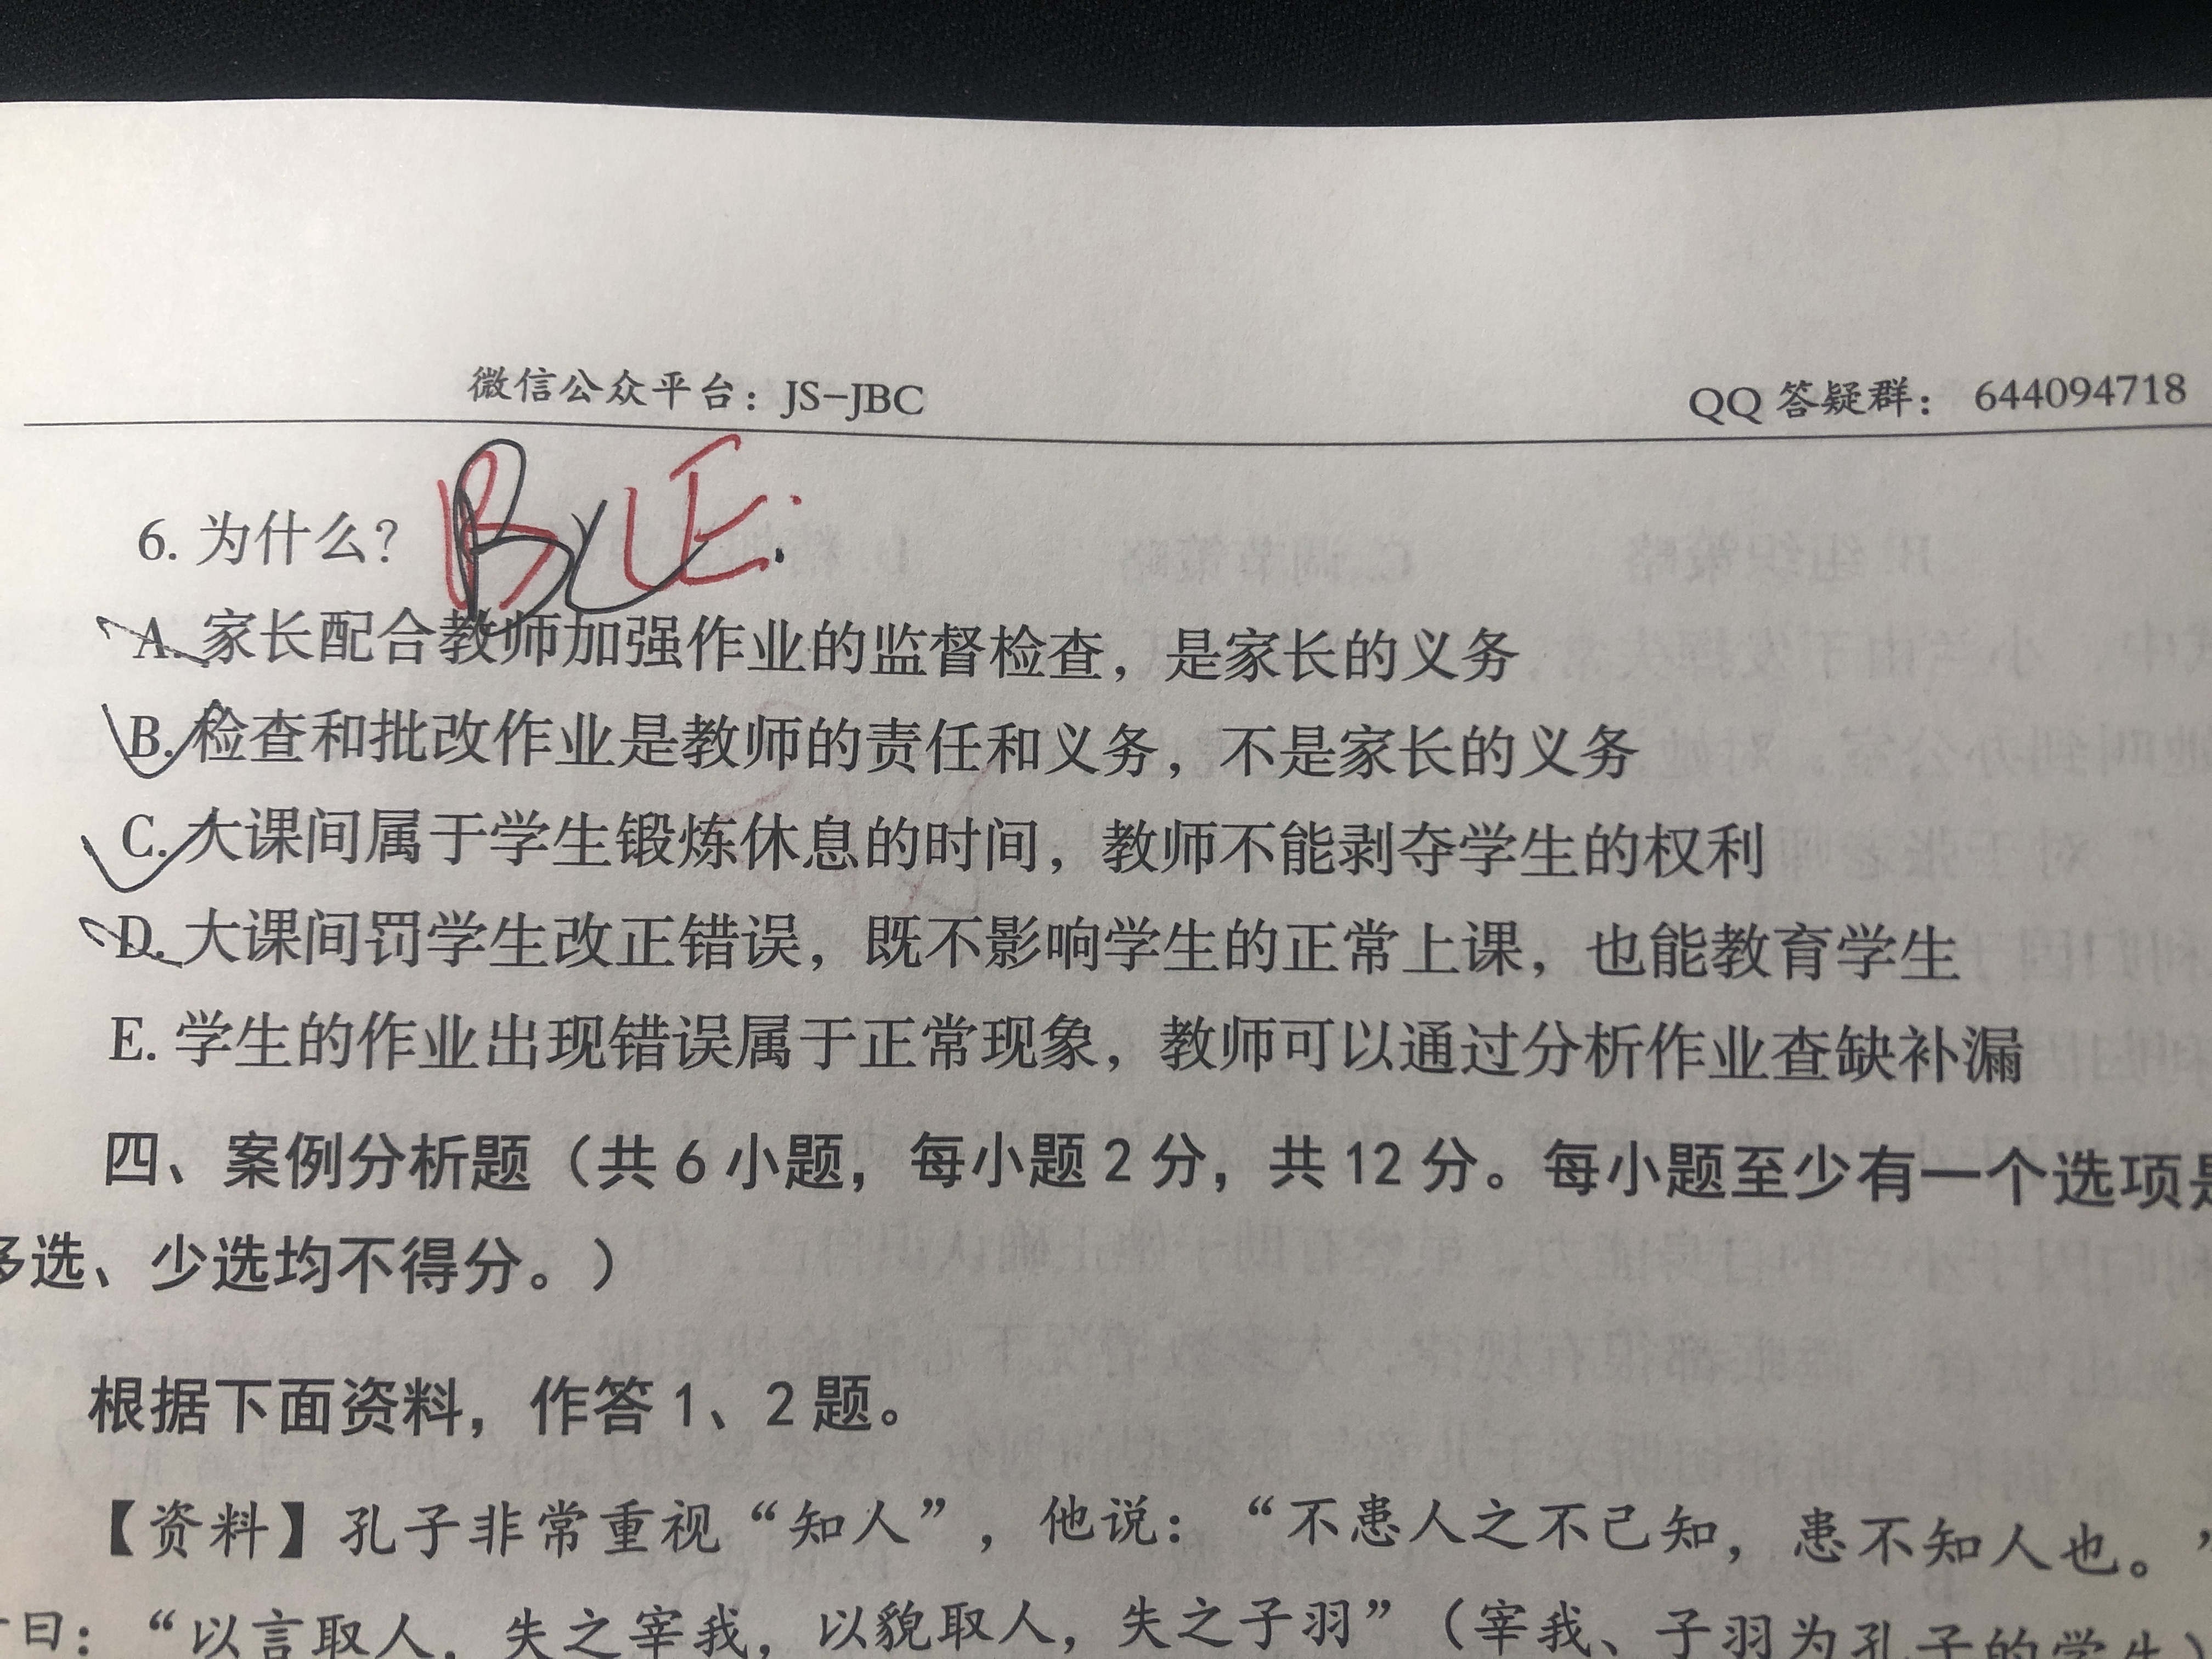 微信公众平台：JS-JBC QQ 答疑群：644094718
6. 为什么？
A. 家长配合教师加强作业的监督检查，是家长的义务
B. 检查和批改作业是教师的责任和义务，不是家长的义务
C. 大课间属于学生锻炼休息的时间，教师不能剥夺学生的权利
D. 大课间罚学生改正错误，既不影响学生的正常上课，也能教育学生
E. 学生的作业出现错误属于正常现象，教师可以通过分析作业查缺补漏
四、案例分析题（共 6 小题，每小题 2 分，共 12 分。每小题至少有一个选项是
多选、少选均不得分。）
根据下面资料，作答 1、2 题。
【资料】孔子非常重视“知人”，他说：“不患人之不己知，患不知人也。”
曰：“以言取人，失之宰我，以貌取人，失之子羽”（宰我、子羽为孔子的学生）